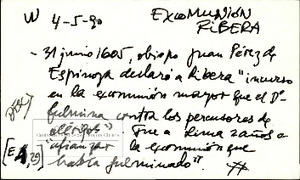 W 4-5-90 EXCOMUNIÓN RIBERA
- 31 junio 1605, obispo Juan Pérez de
Espinoza declaró a Ribera "incurso
en la excomunión mayor que el Dº
fulmina contra los percusores de
clérigos" que a Lima 2 años a
[E 4, 29] afianzar la excomunión que
había fulminado".